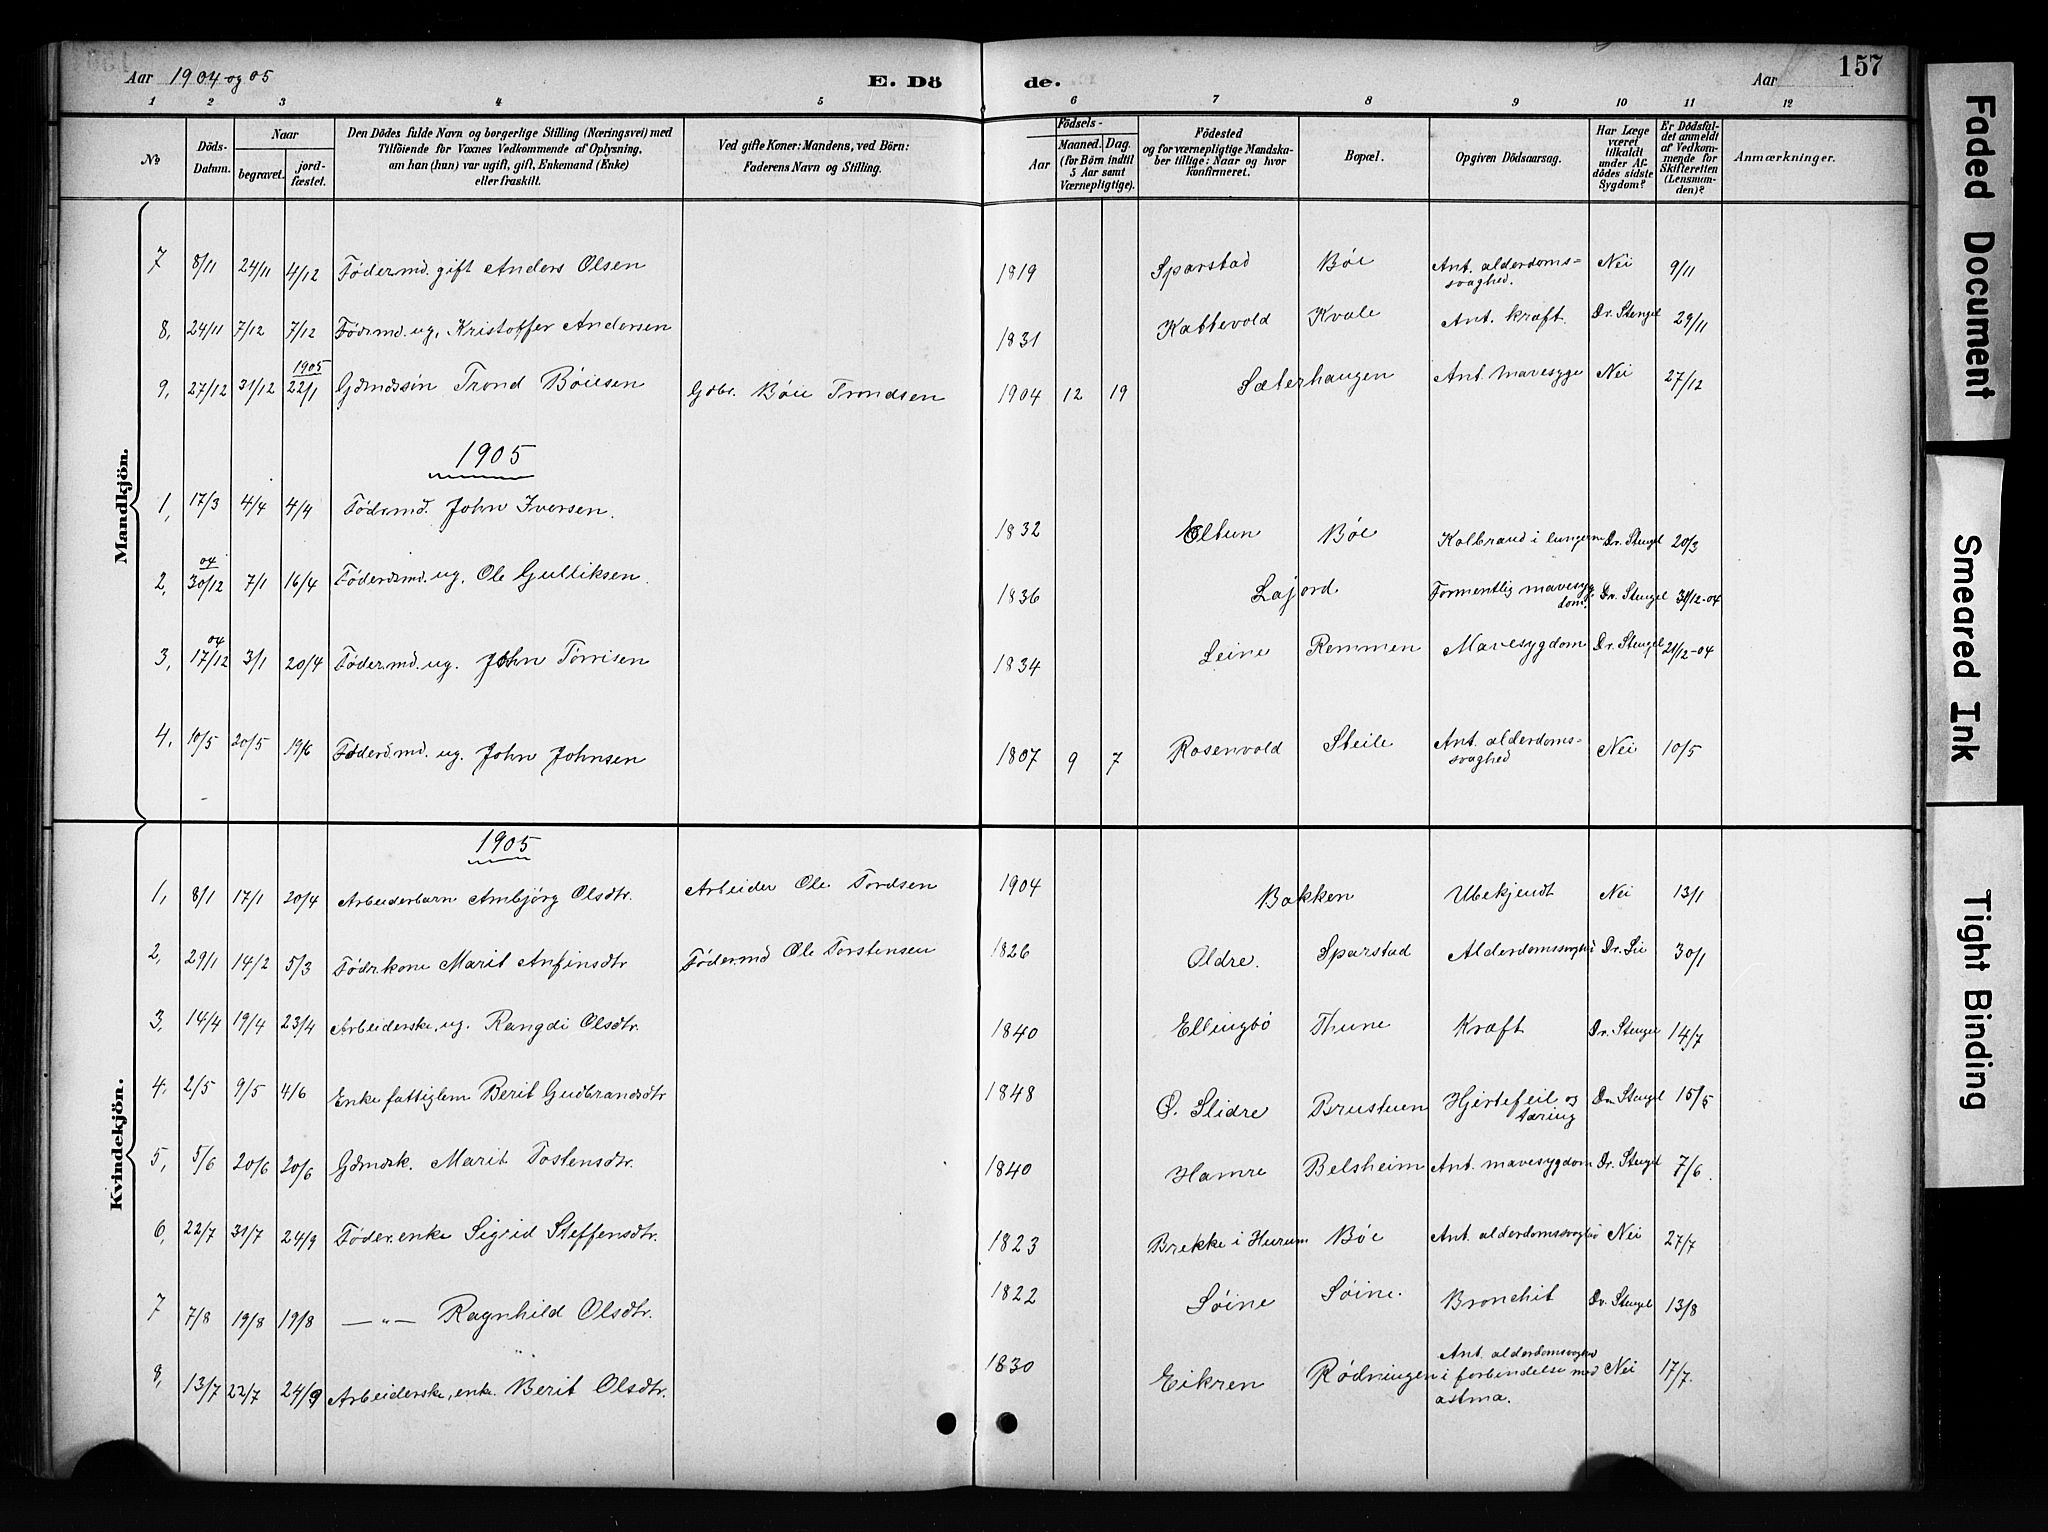 Aar 1904 og 05
E. Dö de.
Aar
157
1 2 3 4 5 6 7 8 9 10 11 12
No
Döds-Datum.
Naar
begravet.
jord-fæstet.
Den Dödes fulde Navn og borgerlige Stilling (Næringsvei) med
Tilföiende for Voxnes Vedkommende af Oplysning,
om han (hun) var ugift, gift, Enkemand (Enke)
eller fraskilt.
Ved gifte Koner: Mandens, ved Börn:
Faderens Navn og Stilling.
Födsels-
Aar
Maaned. Dag.
(for Börn indtil
5 Aar samt
Værnepligtige).
Födested
og for værnepligtige Mandska-
ber tillige: Naar og hvor
konfirmeret.
Bopæl.
Opgiven Dödsaarsag.
Har Læge
været
tilkaldt
under Af-
dödes sidste
Sygdom?
Er Dödsfal-
det anmeldt
af Vedkom-
mende for
Skifteretten
(Lensman-
den)?
Anmærkninger.
Mandkjön.
7 8/11 24/11 4/12 Föder.md. gift Anders Olsen 1819 Sparstad Böe Ant. alderdoms-
svaghed. Nei 9/11
8, 24/11 7/12 7/12 Födr.md. ug, Kristoffer Andersen 1831 Kattevold Kvale Ant. kræft. Dr. Stengel 29/11
1905
9, 27/12 31/12 22/1 Gdmdssön Trond Böiesen Gdbr. Böie Trondsen 1904 12 19 Sæterhaugen Ant. mavesyge Nei 27/12
1905
1, 17/3 4/4 4/4 Födermd. John Iversen. 1832 Eltun Böe Kolbrand i lungerne Dr. Stengel 20/3
04
2, 30/12 7/1 16/4 Föderdsmd. ug, Ole Gulliksen. 1836 Lajord Formentlig mavesyg-
dom. Dr. Stengel 31/12-04
04
3, 17/12 3/1 20/4 Föder.md. ug. John Törrisen 1834 Leine Remmen Mavesygdom Dr. Stengel 21/12-04
4, 10/5 20/5 19/6 Föderd.md. ug. John Johnsen 1807 9 7 Rosenvold Steile Ant. alderdoms-
svaghed Nei 10/5
Kvindekjön.
1905
1, 8/1 17/1 20/4 Arbeiderbarn Ambjörg Olsdtr. Arbeider Ole Tordsen 1904 Bakken Ubekjendt Nei 13/1
2, 29/1 14/2 5/3 Födrkone Marit Anfinsdtr Födermd Ole Torstensen 1826 Oldre. Sparstad Alderdomssvaghd Dr. Lie 30/1
3, 14/4 19/4 23/4 Arbeiderske, ug. Rangdi Olsdtr. 1840 Ellingbö Thune Kræft Dr. Stengel 14/7
4, 2/5 9/5 4/6 Enke fattiglem Berit Gudbrandsdtr 1848 Ö. Slidre Brustuen Hjertefeil og
tæring Dr. Stengel 15/5
5, 5/6 20/6 20/6 Gdmdsk. Marit Tostensdtr. 1840 Hamre Belsheim Ant. mavesygdom Dr. Stengel 7/6.
6, 22/7 31/7 24/9 Föder.enke Sigrid Steffensdtr. 1823 Brekke i Hurum Böe Ant. alderdomssvaghd Nei 27/7
7 7/8 19/8 19/8 — " — Ragnhild Olsdtr. 1822 Söine Söine. Bronchit Dr. Stengel 13/8
8, 13/7 22/7 24/9 Arbeiderske, enke. Berit Olsdtr. 1830 Eikren Rödningen Ant. alderdomssvaghed
i forbindelse med
astma. Nei 17/7.
Faded Document
Smeared Ink
Tight Binding